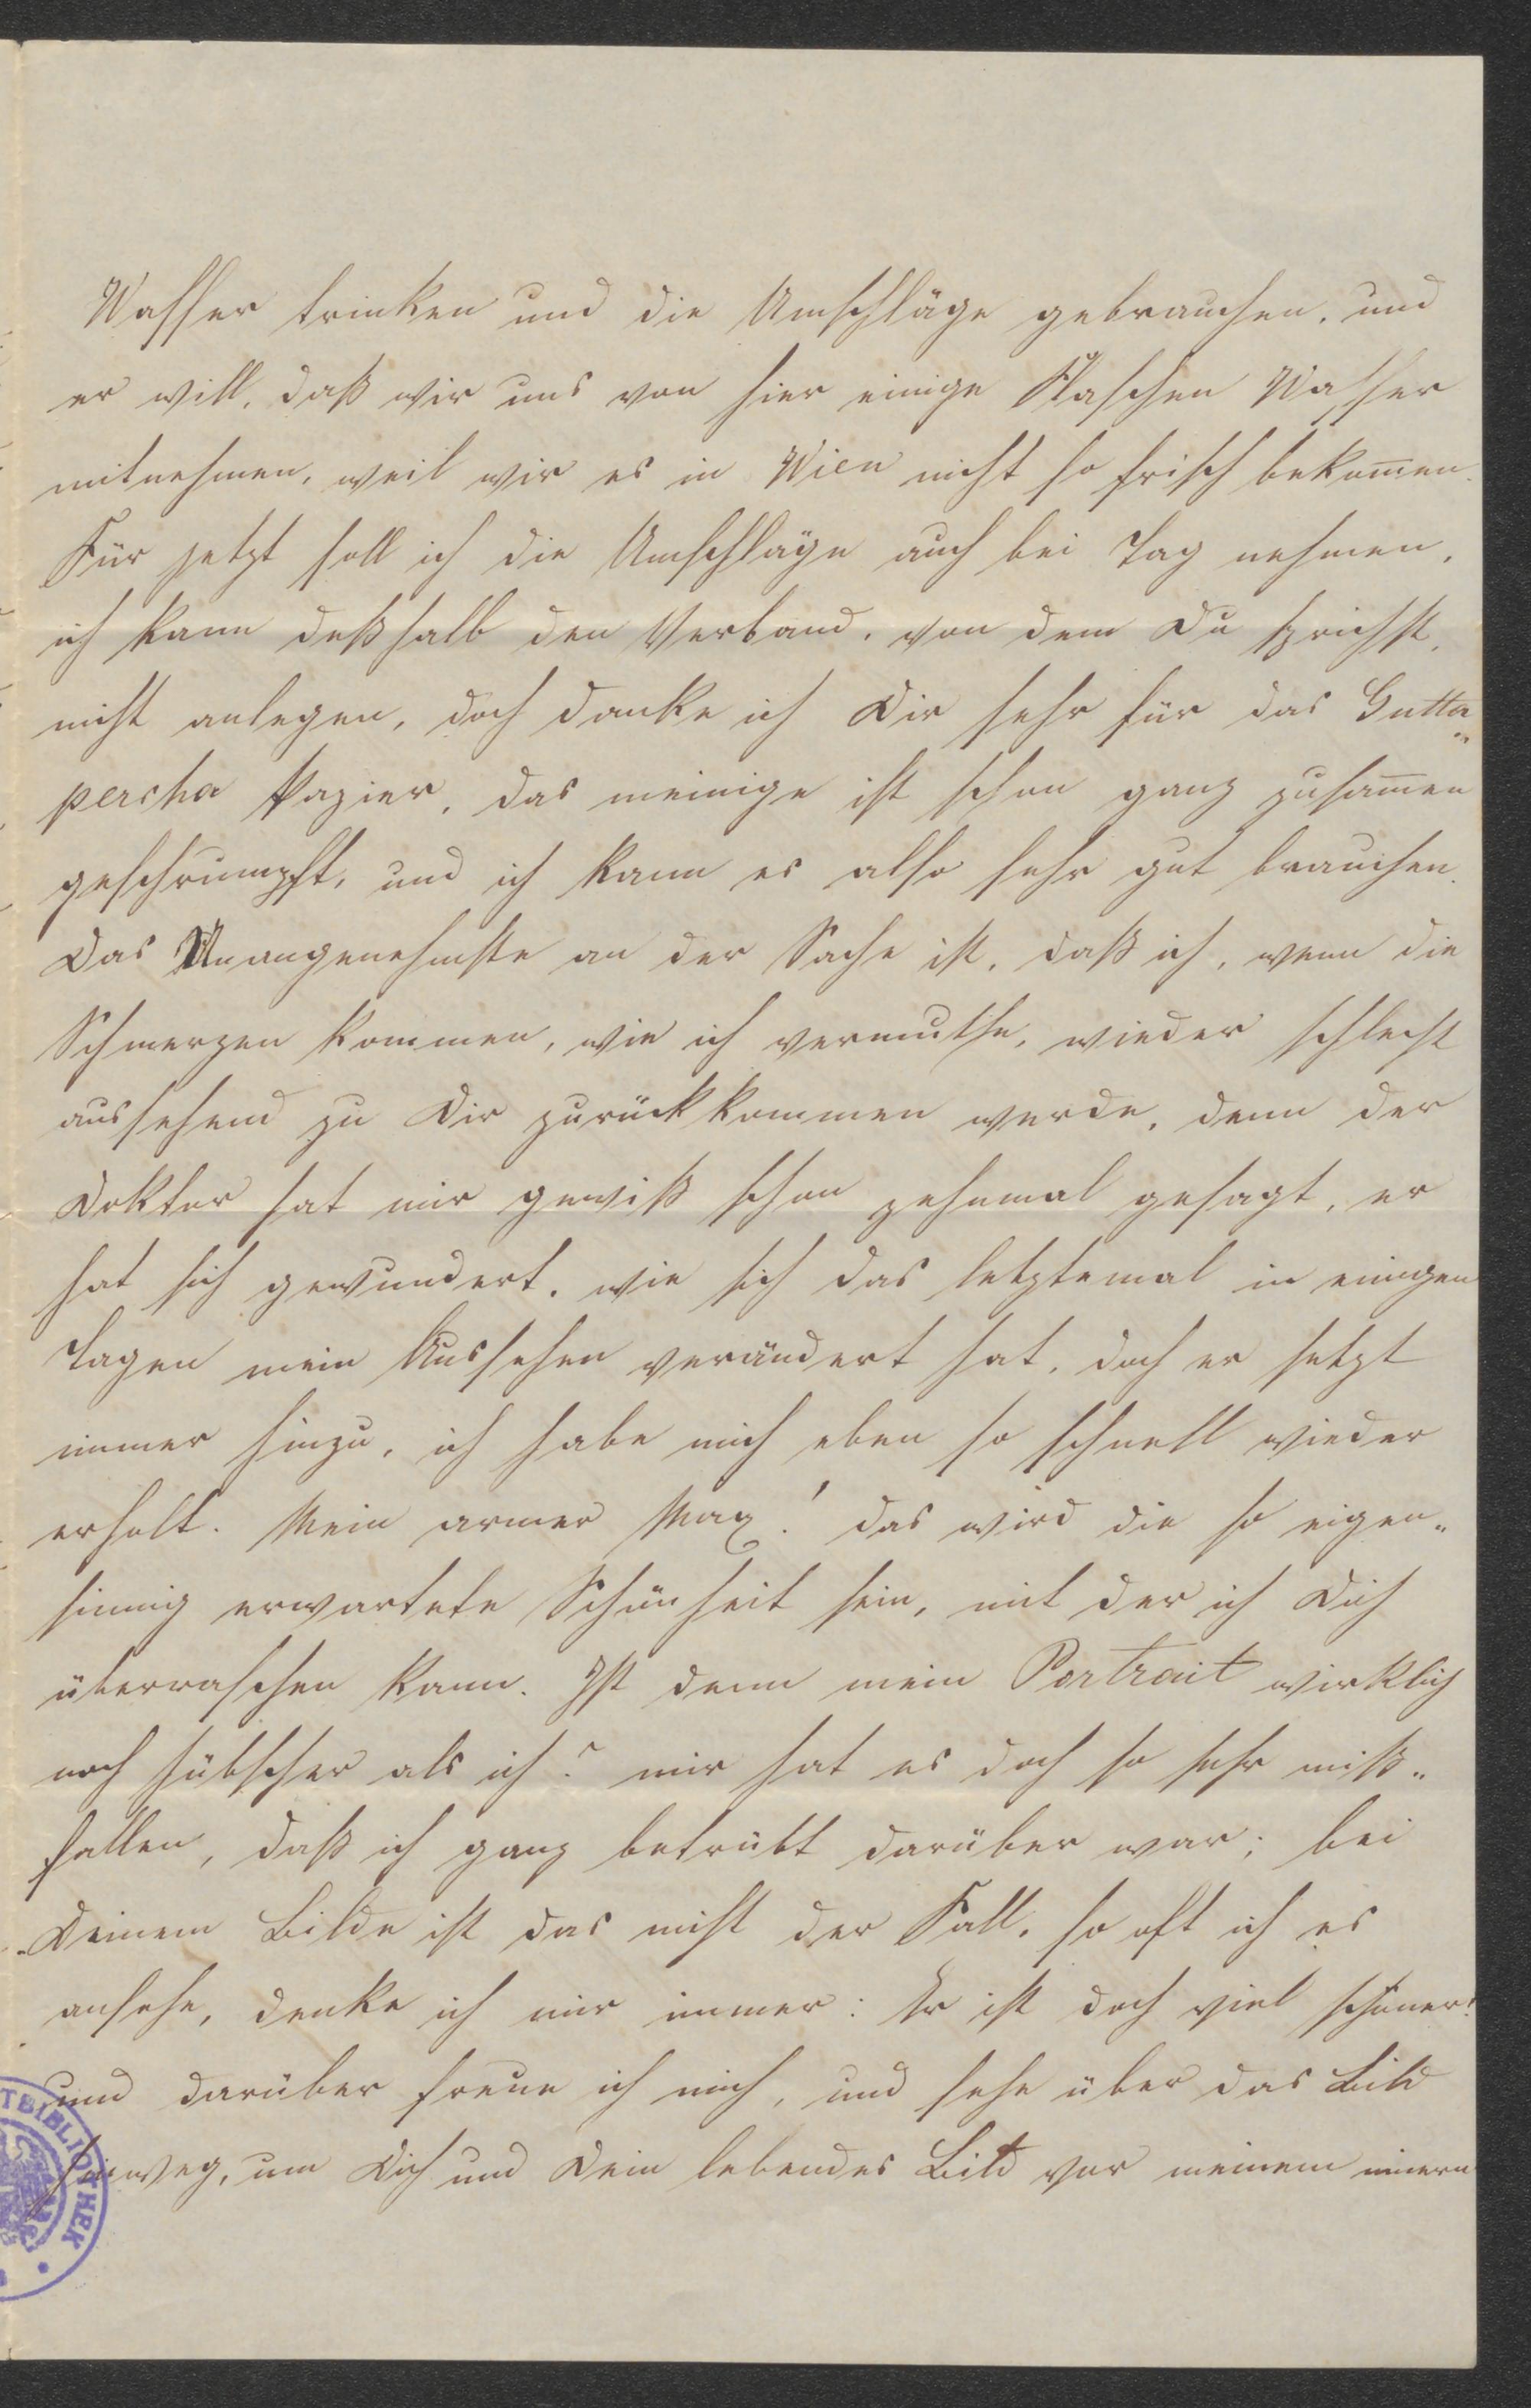 Wasser trinken und die Umschläge gebrauchen, und
er will, daß wir uns von hier einige Flaschen Wasser
mitnehmen, weil wir es in Wien nicht so frisch bekom̅en.
Für jetzt soll ich die Umschläge auch bei Tag nehmen,
ich kann deßhalb den Verband, von dem Du sprichst,
nicht anlegen, doch danke ich Dir sehr für das Gutta„
percha Papier, das meinige ist schon ganz zusam̅en
geschrumpft, und ich kann es also sehr gut brauchen.
Das Unangenehmste an der Sache ist, daß ich, wenn die
Schmerzen kommen, wie ich vermuthe, wieder schlecht
aussehend zu Dir zurückkommen werde, denn der
Doktor hat mir gewiß schon zehnmal gesagt, er
hat sich gewundert, wie sich das letztemal in einigen
Tagen mein Aussehen verändert hat, doch er setzt
immer hinzu, ich habe mich eben so schnell wieder
erholt. Mein armer Max! das wird die so eigen„
sinnig erwartete Schönheit sein, mit der ich Dich
überraschen kann. Ist denn mein Portrait wirklich
noch hübscher als ich? mir hat es doch so sehr miß„
fallen, daß ich ganz betrübt darüber war; bei
Deinem Bilde ist das nicht der Fall, so oft ich es
ansehe, denke ich mir immer: Er ist doch viel schöner!
und darüber freue ich mich, und sehe über das Bild
hinweg, um Dich und Dein lebendes Bild vor meinem innern
TBIBLIOTHEK